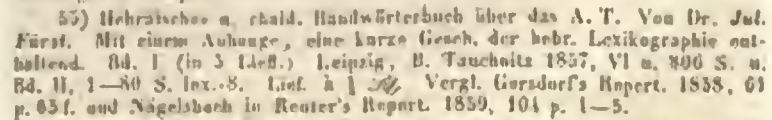 55) Hebräisches u. chald. Handwörterbuch über das A. T. Von Dr. Jul.
Fürst. Mit einem Anhange, eine kurze Gesch. der hebr. Lexikographie ent-
haltend. Bd. I (in 5 Lief.) Leipzig, B. Tauchnitz 1857, VI u. 806 S. u.
Bd. II, 1—80 S. lex.-8. Lief. à Vergl. Gersdorf's Repert. 1858,
p. 65 f. und Nägelsbach in Reuter's Repert. 1859, 104 p. 1—5.